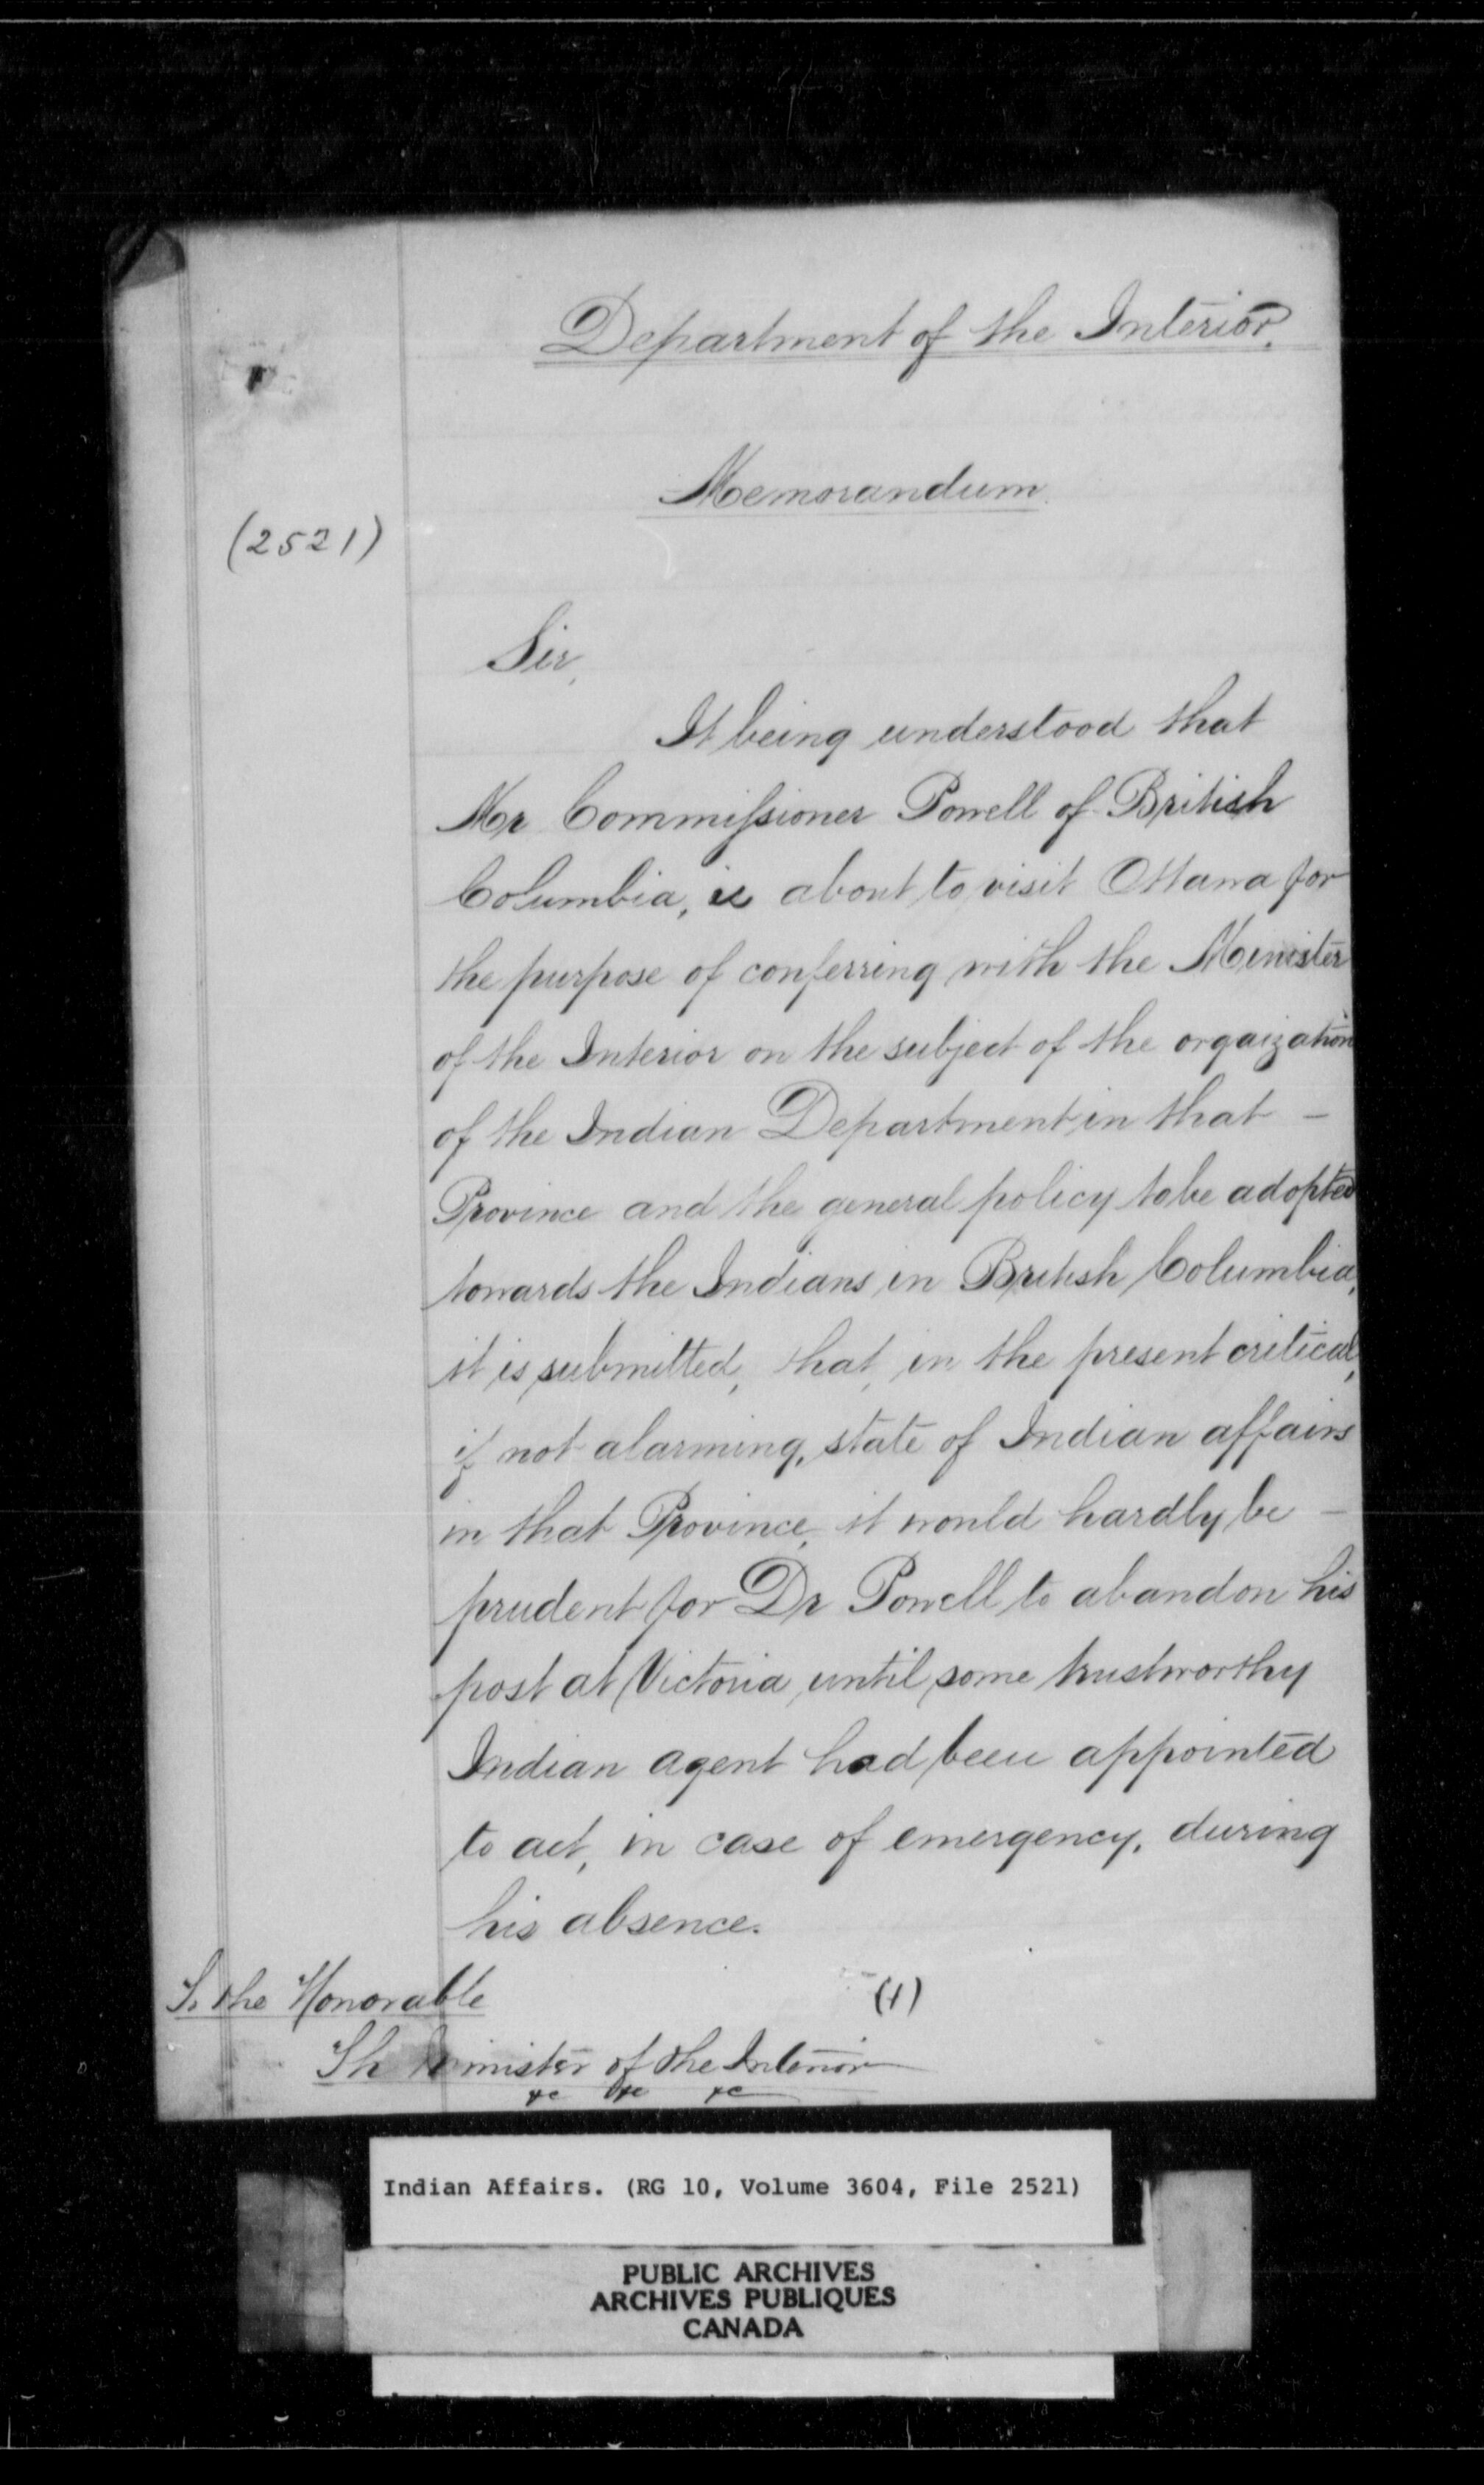 Department of the Interior.
Memorandum.
(2521)
Sir,
It being understood that
Mr Commissioner Powell of British
Columbia, is about to visit Ottawa for
the purpose of conferring with the Minister
of the Interior on the subject of the orgaization
of the Indian Department in that –
Province and the general policy to be adopted
towards the Indians in British Columbia,
it is submitted, that, in the present critical,
if not alarming, state of Indian affairs
in that Province, it would hardly be –
prudent for Dr Powell to abandon his
post at Victoria, until some trustworthy
Indian agent had been appointed
to act, in case of emergency, during
his absence.
To the Honorable
(1)
The Minister of the Interior
&c &c &c
Indian Affairs. (RG 10, Volume 3604, File 2521)
PUBLIC ARCHIVES
ARCHIVES PUBLIQUES
CANADA